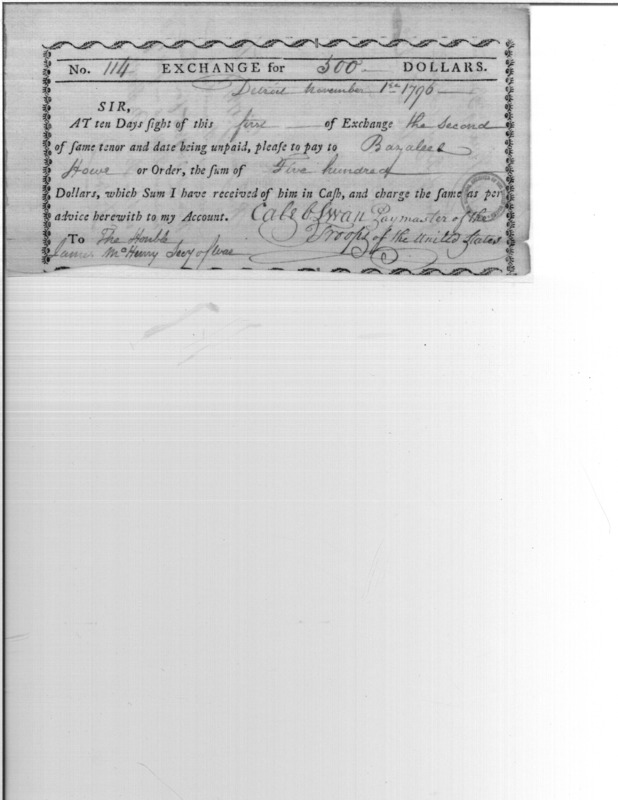 No. 114 EXCHANGE for 500 DOLLARS.
Detroit November 1st 1796
SIR,
AT ten Days ſight of this first of Exchange the second
of ſame tenor and date being unpaid, pleaſe to pay to Bazaleel
Howe or Order, the ſum of Five hundred
Dollars, which Sum I have received of him in Caſh, and charge the ſame as per
advice herewith to my Account. Caleb Swan Paymaster of the
Troops of the United States
To The Honble
James McHenry Secy of War